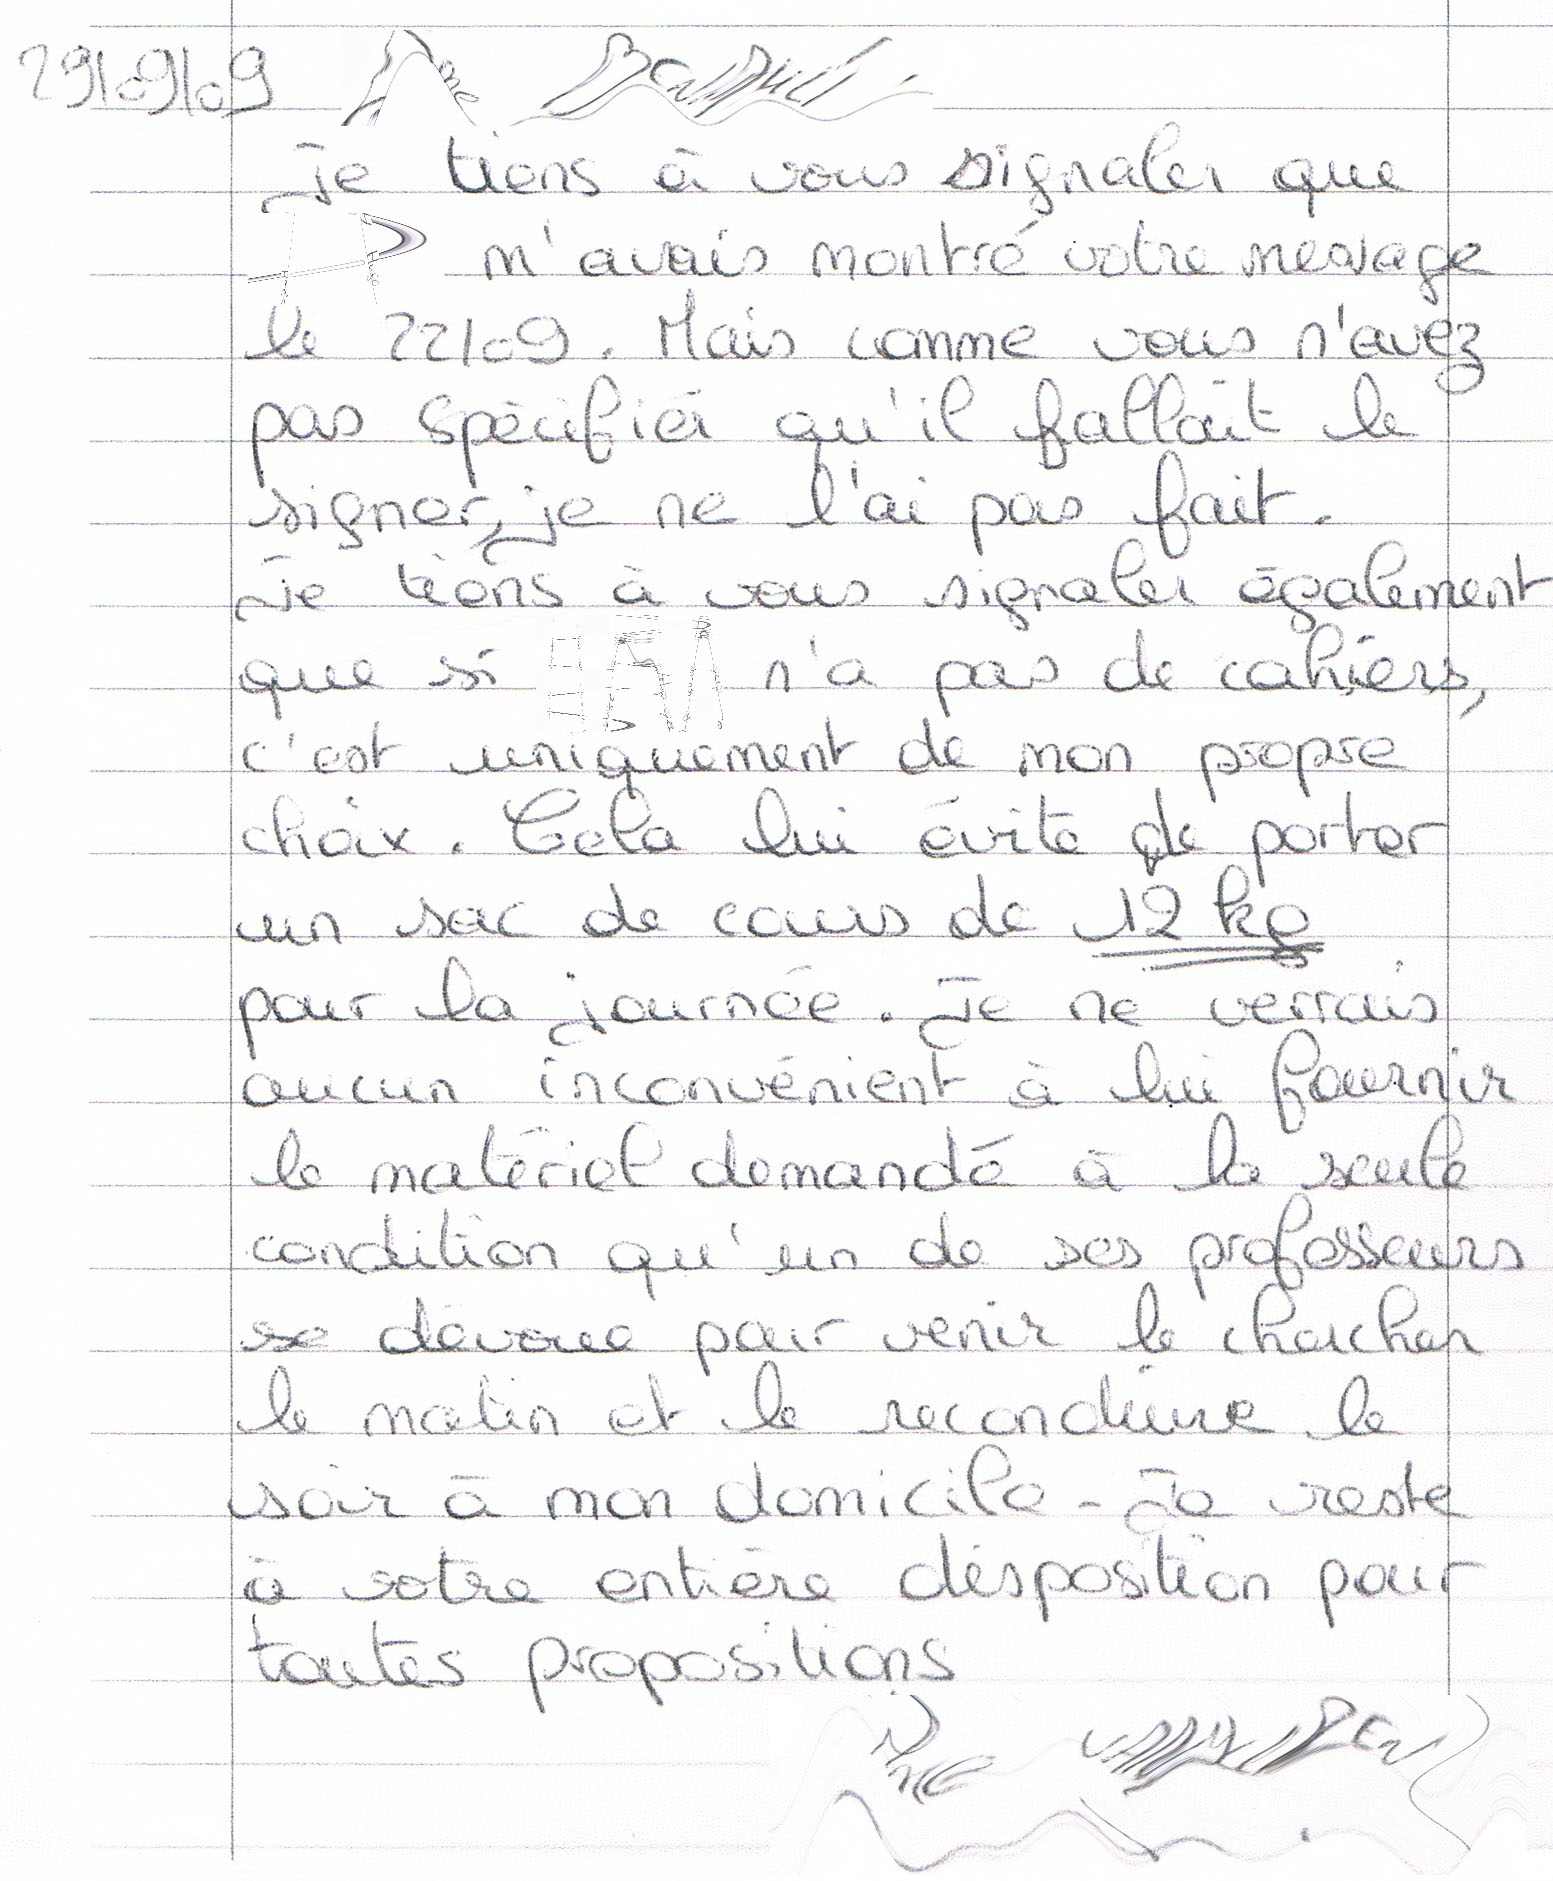 29/09/09
Je tiens à vous signaler que
m'avais montré votre message
le 22/09. Mais comme vous n'avez
pas spécifier qu'il fallait le
signer, je ne l'ai pas fait.
Je tiens à vous signaler également
que si n'a pas de cahiers,
c'est uniquement de mon propre
choix. Cela lui évite de porter
un sac de cours de 12 kg
pour la journée. Je ne verrais
aucun inconvénient à lui fournir
le matériel demandé à la seule
condition qu'un de ses professeurs
se dévoue pour venir le chercher
le matin et le reconduire le
soir à mon domicile - Je reste
à votre entière disposition pour
toutes propositions